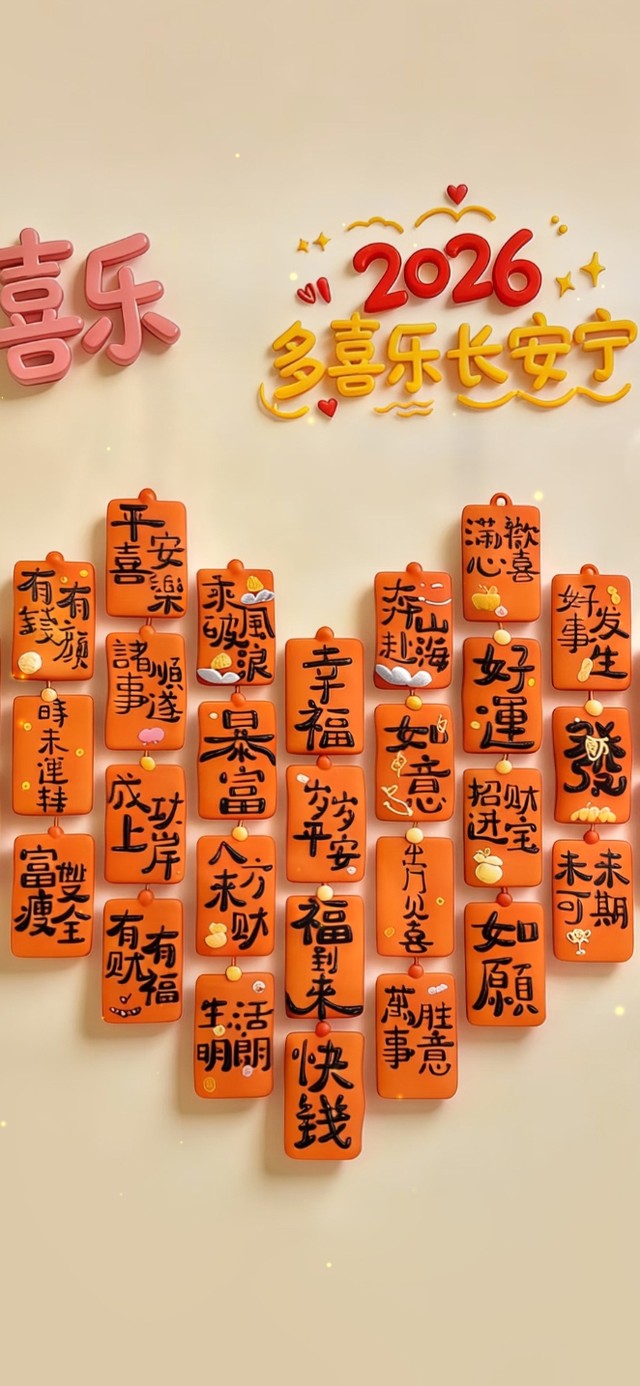 喜乐
2026
多喜乐长安宁
有錢有顏
富瘦雙全
平安喜樂
諸事順遂
成功上岸
有财有福
乘風破浪
暴富
八方来财
生活明朗
幸福
岁岁平安
福到来
快錢
奔赴山海
如意
萬事胜意
滿心歡喜
好運
招财进宝
如願
好事发生
發
未未可期